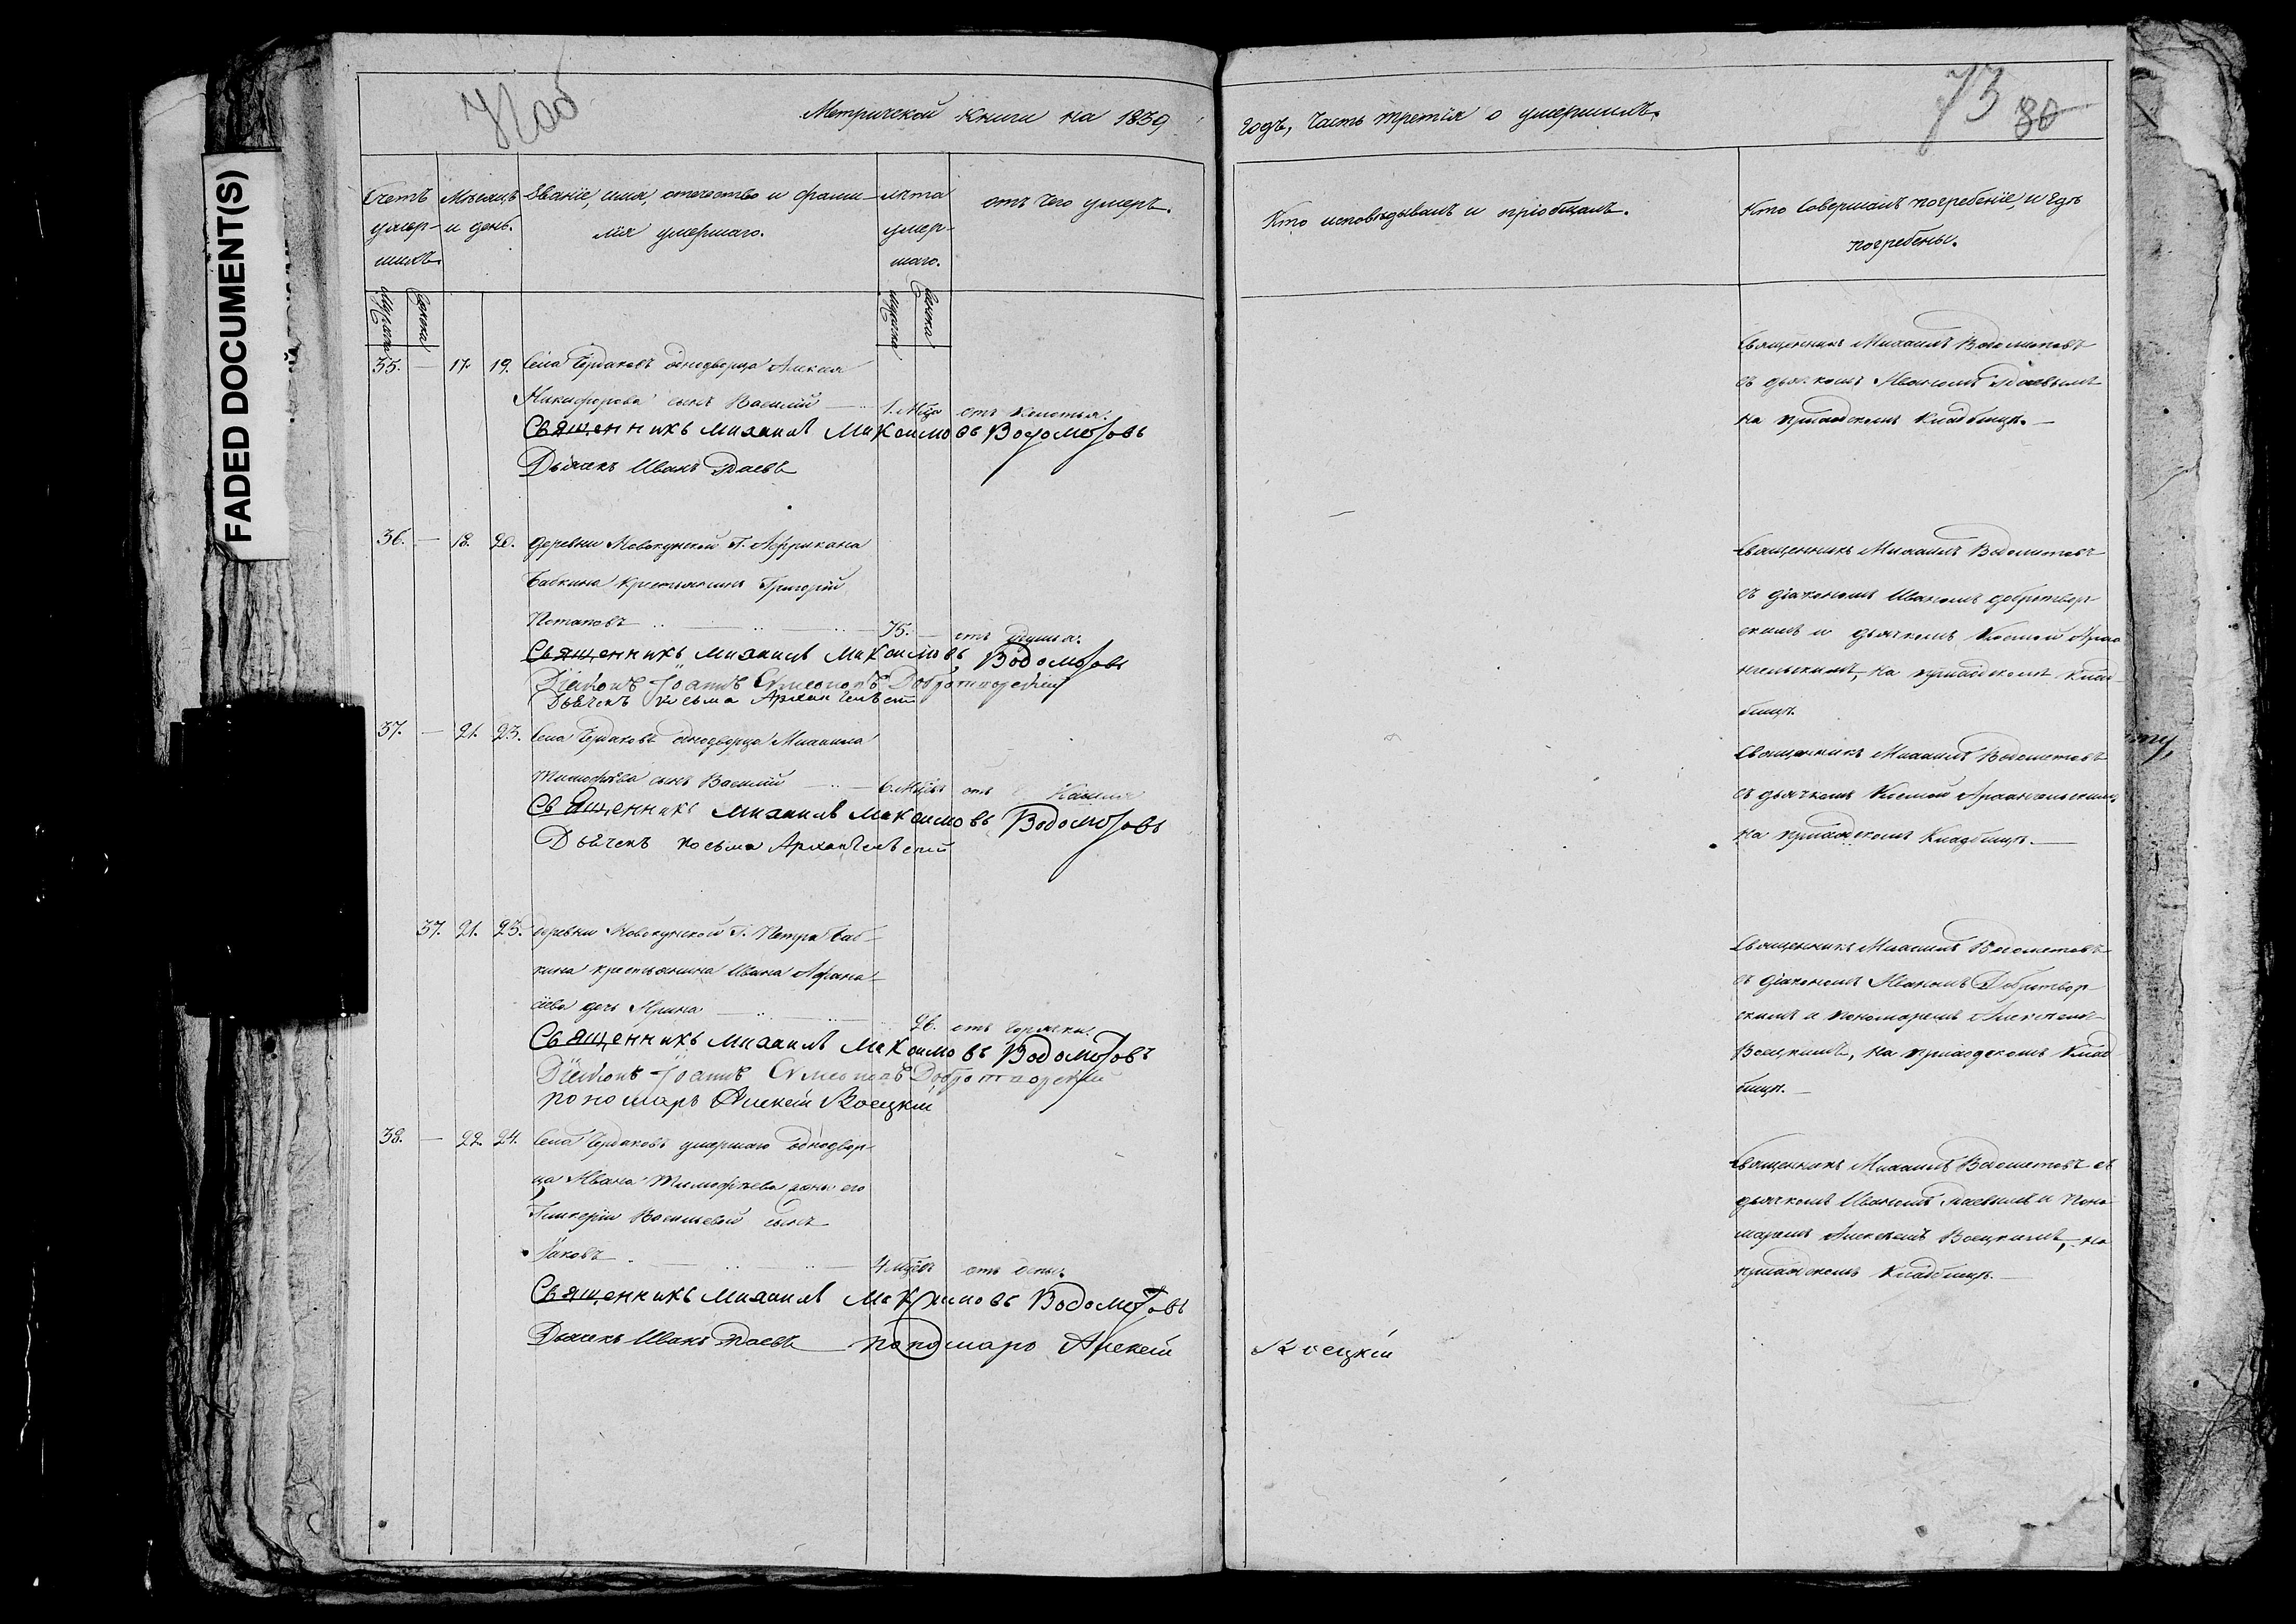 FADED DOCUMENT(S)
Нояб
Метрической книги на 1839
годъ, Часть третія о умершихъ.
73 80
Счетъ умер-шихъ.
Мѣсяцъ и день.
Званіе, имя, отечество и фами-
лія умершаго.
лѣта умер-шаго.
отъ чего умеръ.
Кто исповѣдывалъ и пріобщалъ.
Кто совершалъ погребеніе, и гдѣ
погребены.
Мужеска
Женска
Мужеска
Женска
35. — 17. 19. Села однодворца Алексѣя
Никифорова сынъ Василій — 1. Мца отъ
Священникъ Михаилъ Максимовъ Водометовъ
Дьячекъ Иванъ
Священникъ Михаилъ Водометовъ
съ дьячкомъ Иваномъ
на приходскомъ кладбищѣ. —
36. — 18. 20. деревни Г. Африкана
Бабкина крестьянинъ Григорій
Потаповъ — 75. — отъ
Священникъ Михаилъ Максимовъ Водометовъ
Діаконъ Іоаннъ Симеоновъ Добротворскій
Дьячекъ Косьма Архангельскій
Священникъ Михаилъ Водометовъ
съ діакономъ Иваномъ Добротвор
скимъ и дьячкомъ Космой Архан
гельскимъ, на приходскомъ клад-
бищѣ.
37. — 21. 23. Села однодворца Михаила
Тимофѣева сынъ Василій — 6. Мцовъ отъ Кашля
Священникъ Михаилъ Максимовъ Водометовъ
Дьячекъ Косьма Архангельскій
Священникъ Михаилъ Водометовъ
съ дьячкомъ Космой Архангельскимъ
на приходскомъ Кладбищѣ. —
37. 21. 23. деревни Г. Петра Баб-
кина крестьянина Ивана Афана-
сіева дочь Ирина — 26. отъ горячки.
Священникъ Михаилъ Максимовъ Водометовъ
Діаконъ Іоаннъ Симеоновъ Добротворскій
пономарь Алексѣй Воецкій
Священникъ Михаилъ Водометовъ
съ діакономъ Иваномъ Добротвор
скимъ и пономаремъ Алексѣемъ
Воецкимъ, на приходскомъ клад
бищѣ. —
38. — 22. 24. Села умершаго однодвор-
ца Ивана Тимофѣева жены его
Гликеріи Васильевой сынъ
Іаковъ — 4 мцовъ отъ оспы.
Священникъ Михаилъ Максимовъ Водометовъ
Дьячекъ Иванъ пономарь Алексѣй Воецкій
Священникъ Михаилъ Водометовъ съ
дьячкомъ Иваномъ и поно
маремъ Алексѣемъ Воецкимъ, на
приходскомъ кладбищѣ. —